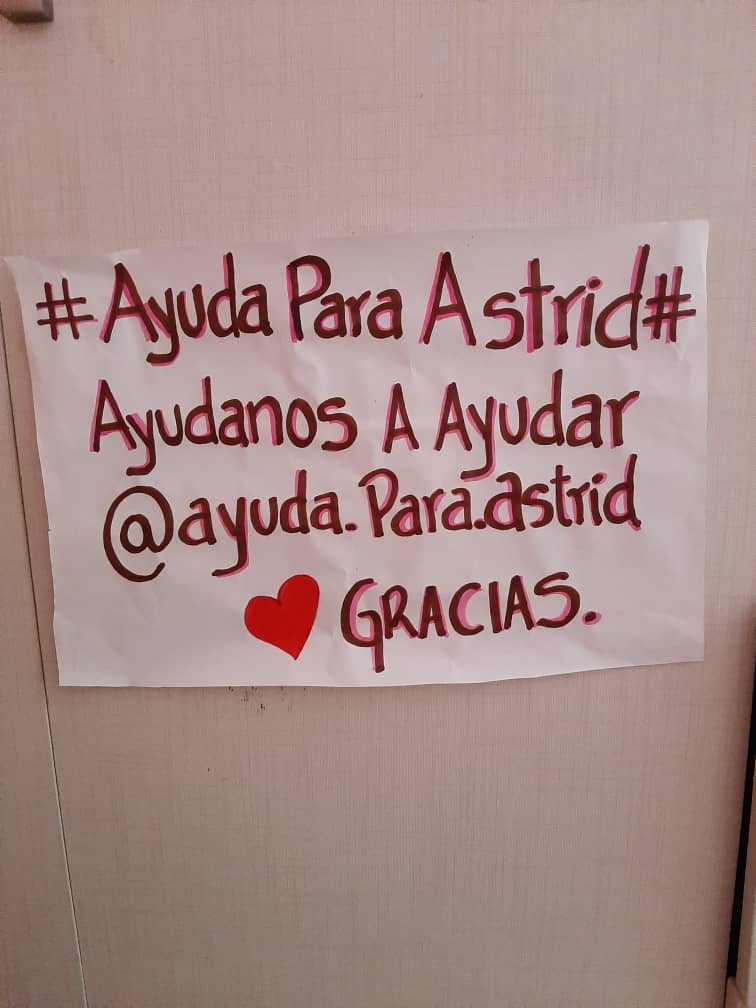 #Ayuda Para Astrid#
Ayudanos A Ayudar
@ayuda.Para.astrid
GRACIAS.